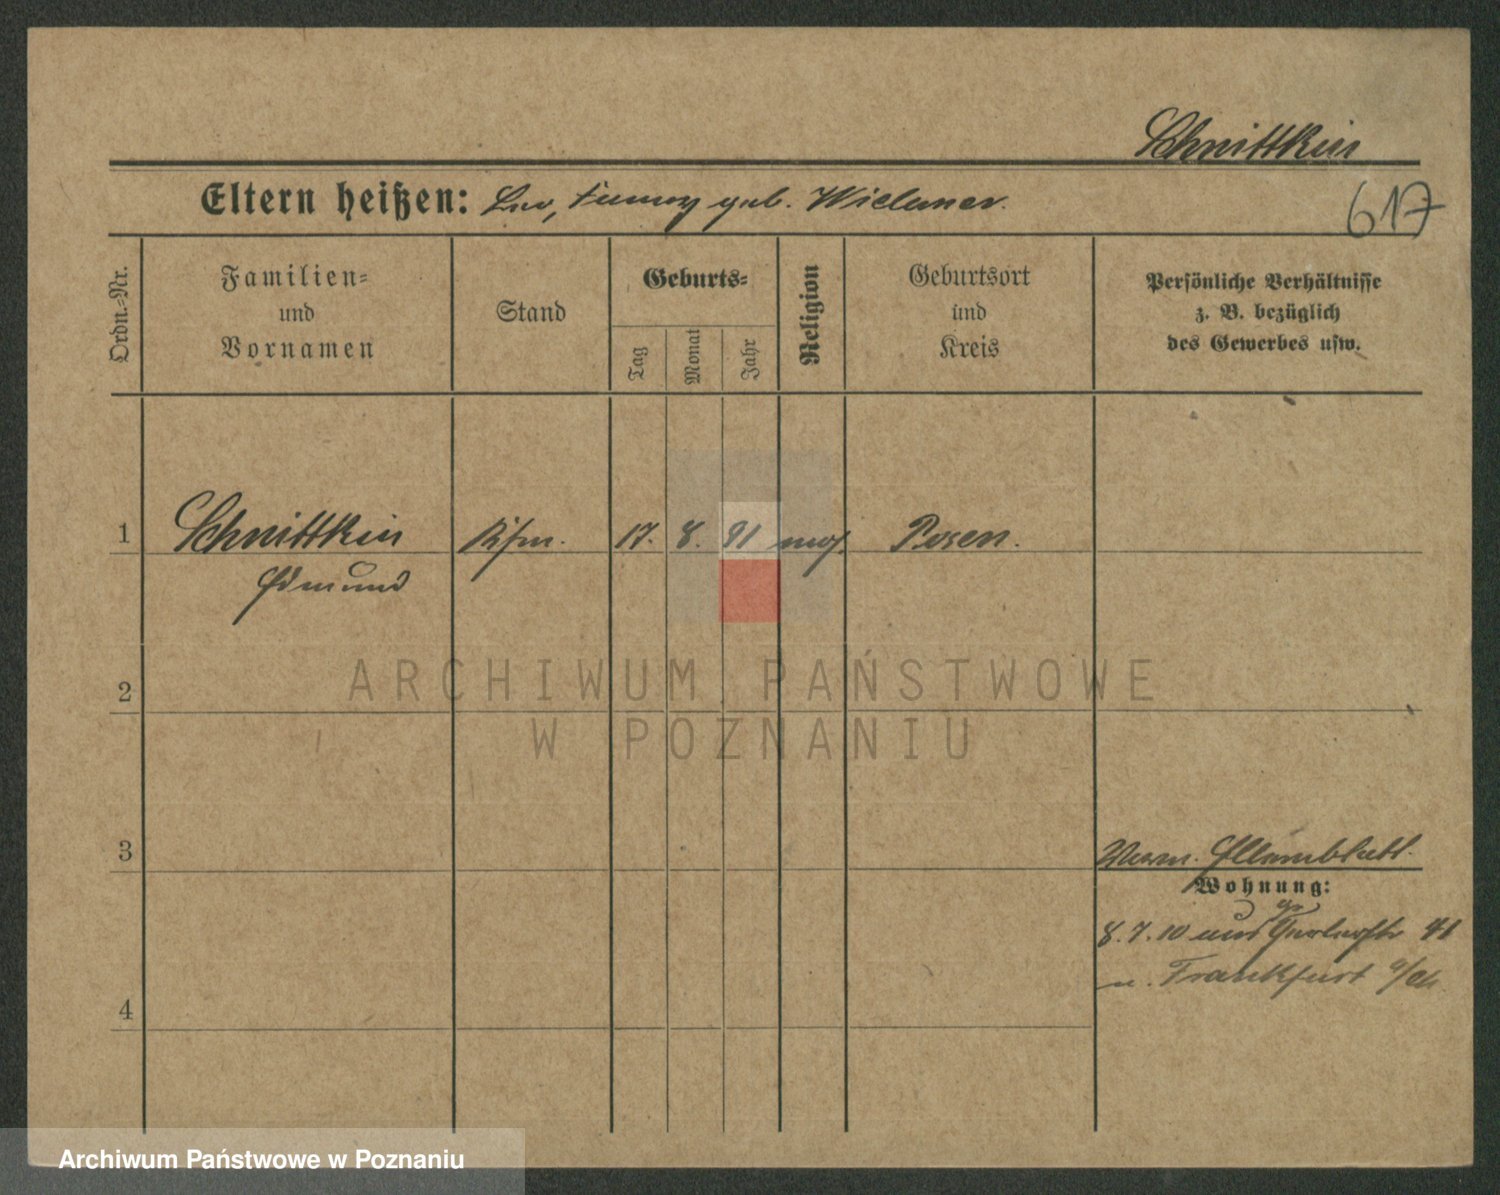 Schnittkin
Eltern heißen: Leo, Fanny geb.
617
Ordn.=Nr.
Familien=
und
Vornamen
Stand
Geburts=
Tag
Monat
Jahr
Religion
Geburtsort
und
Kreis
Persönliche Verhältnisse
z. B. bezüglich
des Gewerbes usw.
1 Schnittkin Kfm. 17. 8. 91 mos. Posen.
Edmund
2
ARCHIWUM PAŃSTWOWE
W POZNANIU
3
Verm. Elternblatt.
Wohnung:
8. 7. 10 41
n. Frankfurt a/M.
4
Archiwum Państwowe w Poznaniu